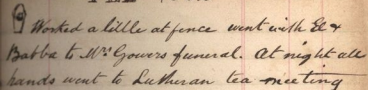 9 Worked a little at fence went with El &
Babba to Mrs Gowers funeral. At night all
hands went to Lutheran tea meeting